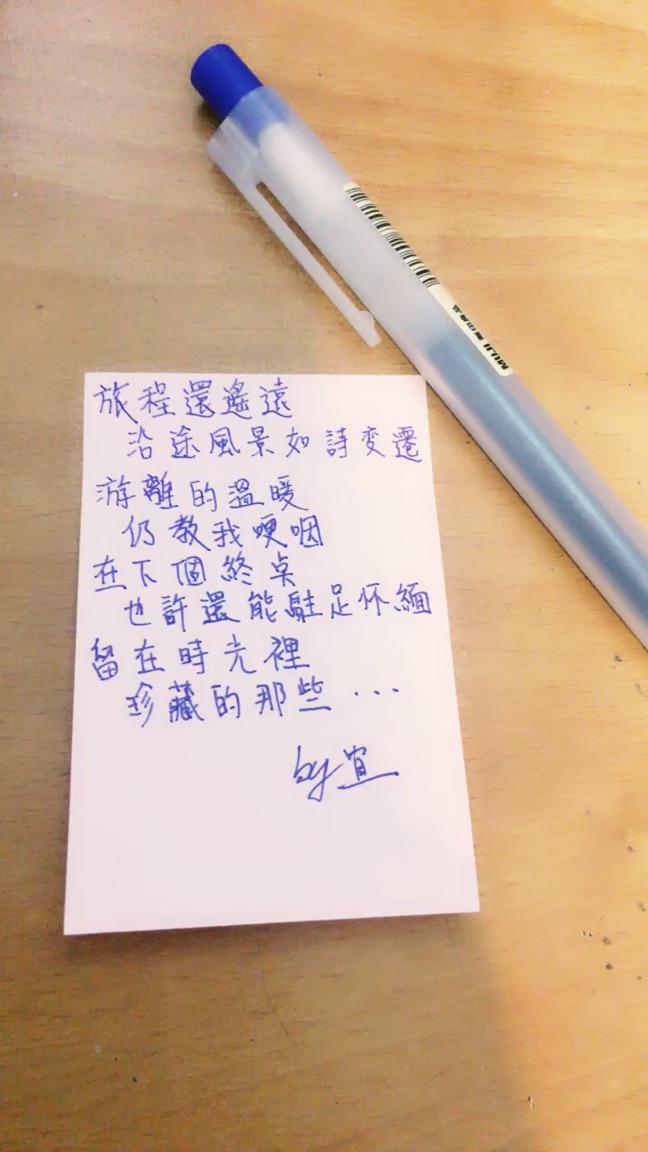 旅程還遙遠
沿途風景如詩變遷
游離的溫暖
仍教我哽咽
在下個終点
也許還能駐足怀緬
留在時光裡
珍藏的那些...
by 宜
MUJI 無印良品